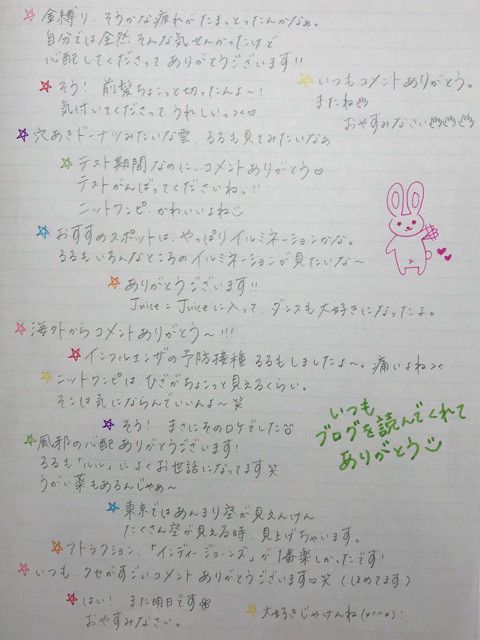 金縛り、そうかな疲れがたまっとったんかなぁ。
自分では全然そんな気せんかったけど
心配してくださってありがとうございます!!
そう! 前髪ちょこっと切ったんよ〜!
気付いてくださってうれしいっ><♡
いつもコメントありがとう。
またね
おやすみなさい
穴あきドーナツみたいな雲、るるも見てみたいなぁ
テスト期間なのに、コメントありがとう♡
テストがんばってくださいねっ!!
ニットワンピ、かわいいよね
おすすめスポットは、やっぱりイルミネーションかな。
るるもいろんなところのイルミネーションが見たいな〜
ありがとうございます!!
Juice=Juiceに入って、ダンスも大好きになったよ。
海外からコメントありがとう〜!!!
インフルエンザの予防接種 るるもしましたよ〜。痛いよね><
ニットワンピは、ひざがちょこっと見えるくらい。
そこは気にならんでいいんよ〜笑
そう! まさにそのロケでした
いつも
ブログを読んでくれて
ありがとう
風邪の心配ありがとうございます!
るるも「ルル」によくお世話になってます笑
うがい薬もあるんじゃぁ〜
東京ではあんまり空が見えんけん
たくさん空が見える時、見上げちゃいます。
アトラクション、「インディージョーンズ」が1番楽しかったです!
いつも、クセがすごいコメントありがとうございます♡笑(ほめてます)
はい! また明日です
おやすみなさい。
大好きじゃけんね(^∧^)!